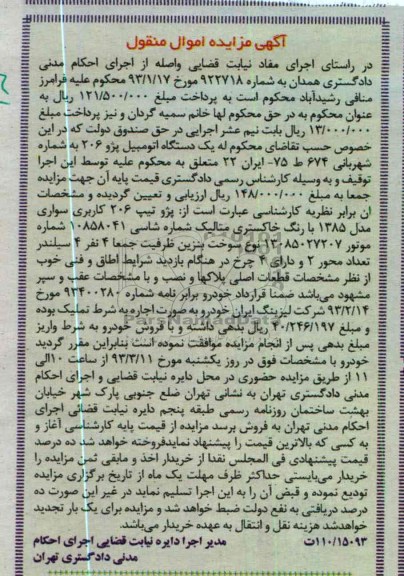 آگهی مزایده اموال منقول
در راستای اجرای مفاد نیابت قضایی واصله از اجرای احکام مدنی
دادگستری همدان به شماره ۹۲۲۷۱۸ مورخ ۹۳/۱/۱۷ محکوم علیه فرامرز
منافی رشیدآباد محکوم است به پرداخت مبلغ ۱۲۱/۵۰۰/۰۰۰ ریال به
عنوان محکوم به در حق محکوم لها خانم سمیه گردان و نیز پرداخت مبلغ
۱۳/۰۰۰/۰۰۰ ریال بابت نیم عشر اجرایی در حق صندوق دولت که در این
خصوص حسب تقاضای محکوم له یک دستگاه اتومبیل پژو ۲۰۶ به شماره
شهربانی ۶۷۴ ط ۷۵- ایران ۲۲ متعلق به محکوم علیه توسط این اجرا
توقیف و به وسیله کارشناس رسمی دادگستری قیمت پایه آن جهت مزایده
جمعا به مبلغ ۱۴۸/۰۰۰/۰۰۰ ریال ارزیابی و تعیین گردیده و مشخصات
ان برابر نظریه کارشناسی عبارت است از: پژو تیپ ۲۰۶ کاربری سواری
مدل ۱۳۸۵ با رنگ خاکستری متالیک شماره شاسی ۱۰۸۵۸۰۴۱ شماره
موتور ۱۳۰۸۵۰۲۷۲۰۷ نوع سوخت بنزین ظرفیت جمعا ۴ نفر ۴ سیلندر
تعداد محور ۲ و دارای ۴ چرخ در هنگام بازدید شرایط اطاق و فنی خوب
از نظر مشخصات قطعات اصلی پلاکها و نصب و با مشخصات عقب و سپر
مشهود می‌باشد ضمنا قرارداد خودرو برابر نامه شماره ۹۳۴۰۰۲۸۰ مورخ
۹۳/۲/۱۴ شرکت لیزینگ ایران خودرو به صورت اجاره به شرط تملیک بوده
و مبلغ ۴۰/۲۴۶/۱۹۷ ریال بدهی داشته و با فروش خودرو به شرط واریز
مبلغ بدهی پس از انجام مزایده موافقت نموده است بنابراین مقرر گردید
خودرو با مشخصات فوق در روز یکشنبه مورخ ۹۳/۳/۱۱ از ساعت ۱۰الی
۱۱ از طریق مزایده حضوری در محل دایره نیابت قضایی و اجرای احکام
مدنی دادگستری تهران به نشانی تهران ضلع جنوبی پارک شهر خیابان
بهشت ساختمان روزنامه رسمی طبقه پنجم دایره نیابت قضائی اجرای
احکام مدنی تهران به فروش برسد مزایده از قیمت پایه کارشناسی آغاز و
به کسی که بالاترین قیمت را پیشنهاد نماید‌فروخته خواهد شد ده درصد
قیمت پیشنهادی فی المجلس نقدا از خریدار اخذ و مابقی ثمن مزایده را
خریدار می‌بایستی حداکثر ظرف مهلت یک ماه از تاریخ برگزاری مزایده
تودیع نموده و قبض آن را به این اجرا تسلیم نماید در غیر این صورت ده
درصد دریافتی به نفع دولت ضبط خواهد شد و مزایده برای یک بار تجدید
خواهدشد هزینه نقل و انتقال به عهده خریدار می‌باشد.
۱۱۰/۱۵۰۹۳ت مدیر اجرا دایره نیابت قضایی اجرای احکام
مدنی دادگستری تهران